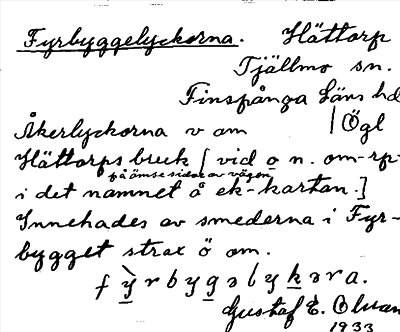 Fyrbyggelyckorna. Hättorp
Tjällmo sn.
Finspånga läns hd
Ögl
Åkerlyckorna v om
Hättorps bruk [ vid o n. om-rp-
på ömse sidor av vägen
i det namnet å ek-kartan.]
Innehades av smederna i Fyr-
bygget strax ö om.
fyrbygəlykəra.
Gustaf E. Olsson
1933